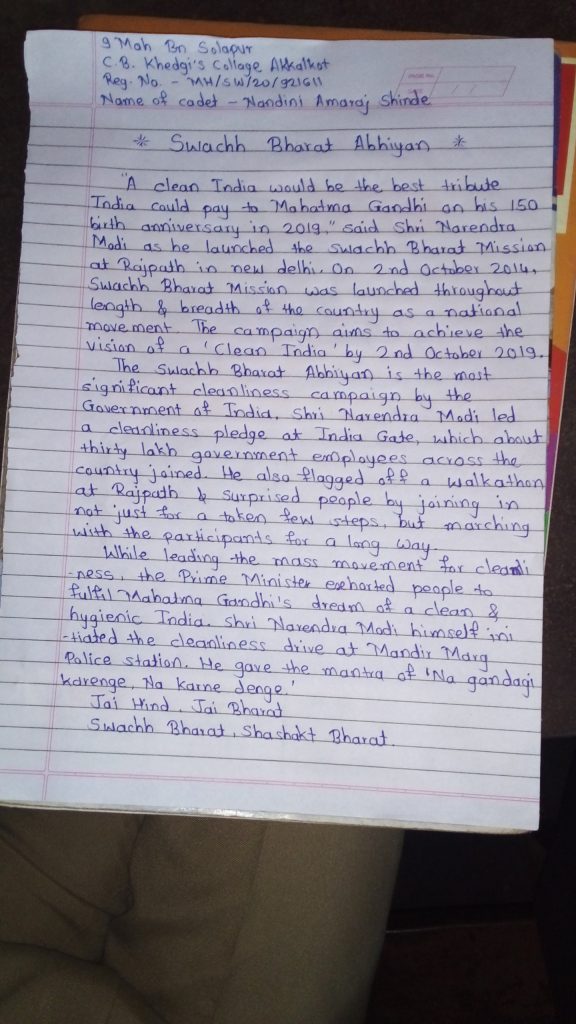 9 Mah Bn Solapur
C.B. Khedgi's Collage Akkalkot
Reg. No. - MH/SW/20/921611
Name of cadet - Nandini Amaraj Shinde
* Swachh Bharat Abhiyan *
"A clean India would be the best tribute
India could pay to Mahatma Gandhi on his 150
birth anniversary in 2019," said Shri Narendra
Modi as he launched the Swachh Bharat Mission
at Rajpath in new delhi. On 2nd October 2014,
Swachh Bharat Mission was launched throughout
length & breadth of the country as a national
movement. The campaign aims to achieve the
vision of a 'Clean India' by 2nd October 2019.
The Swachh Bharat Abhiyan is the most
significant cleanliness campaign by the
Government of India. Shri Narendra Modi led
a cleanliness pledge at India Gate, which about
thirty lakh government employees across the
country joined. He also flagged off a walkathon
at Rajpath & surprised people by joining in
not just for a token few steps, but marching
with the participants for a long way
While leading the mass movement for cleanli
-ness, the Prime Minister exhorted people to
fulfil Mahatma Gandhi's dream of a clean &
hygienic India. Shri Narendra Modi himself ini
-tiated the cleanliness drive at Mandir Marg
Police station. He gave the mantra of 'Na gandagi
karenge, Na karne denge.'
Jai Hind. Jai Bharat
Swachh Bharat, Shashakt Bharat.